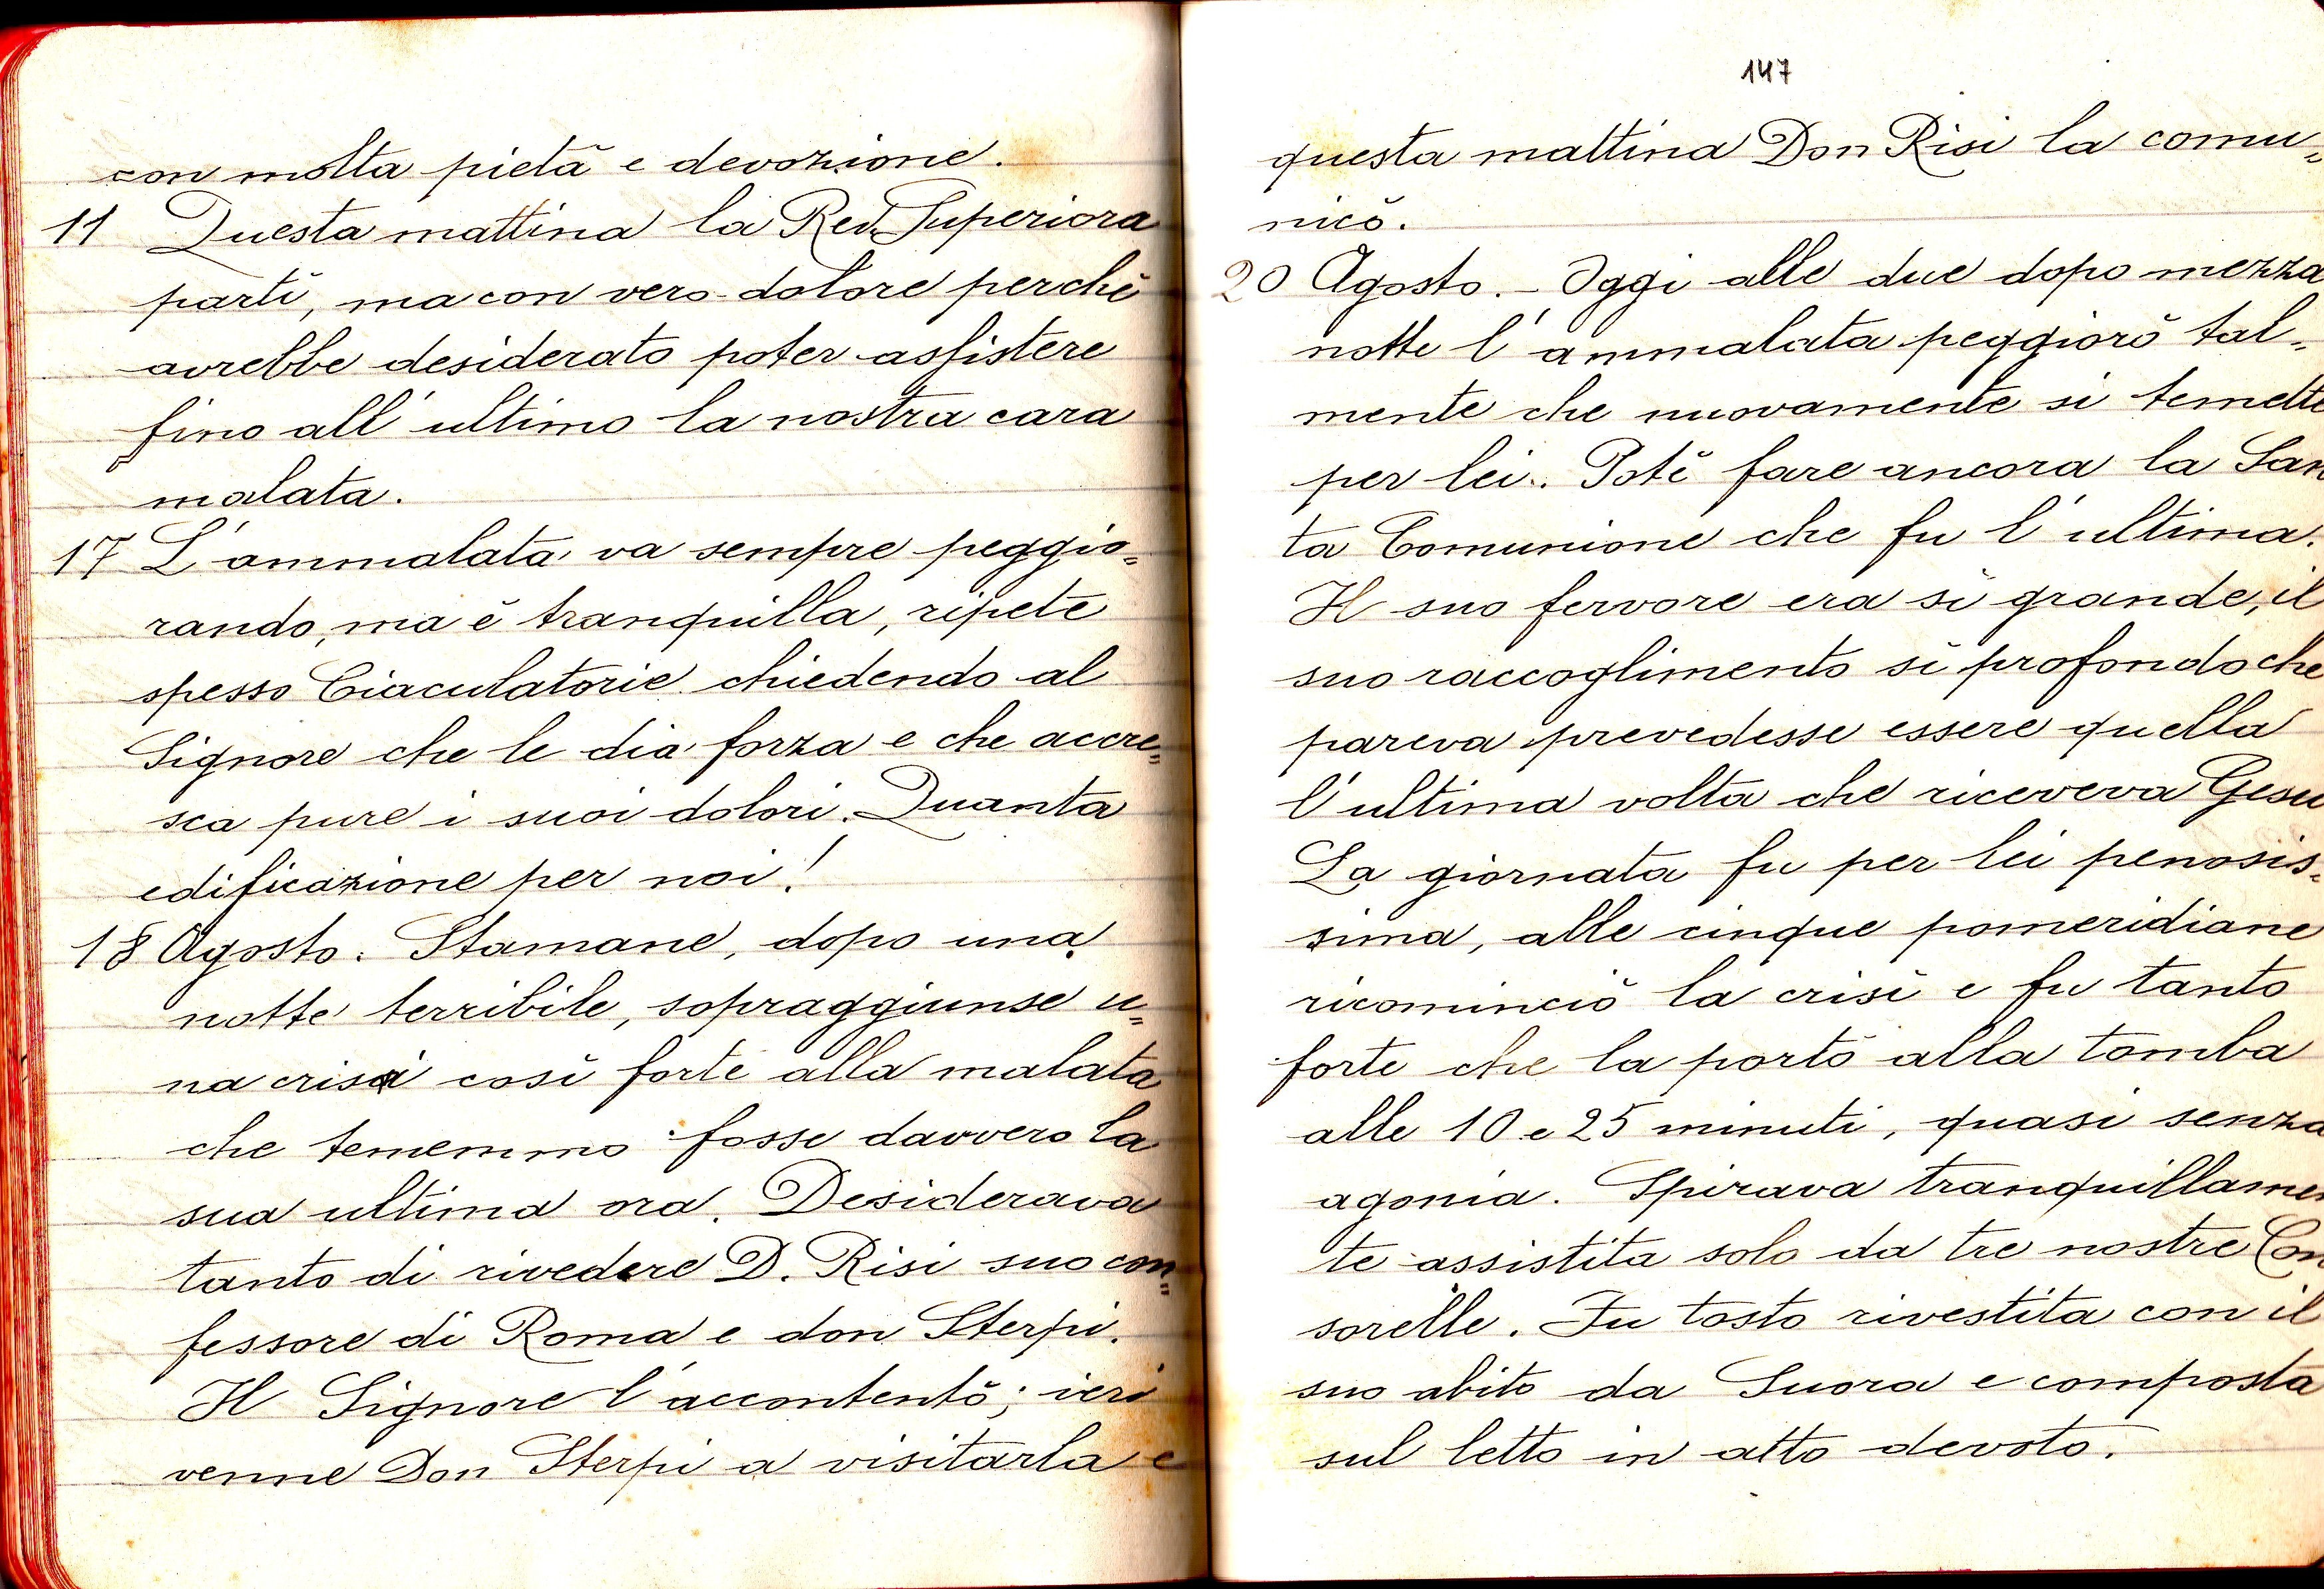 con molta pietà e devozione.
11 Questa mattina la Rev. Superiora
partì, ma con vero dolore perchè
avrebbe desiderato poter assistere
fino all'ultimo la nostra cara
malata.
17 L'ammalata va sempre peggio=
rando, ma è tranquilla, ripete
spesso Giaculatorie chiedendo al
Signore che le dia forza e che accre=
sca pure i suoi dolori. Quanta
edificazione per noi!
18 Agosto. Stamane, dopo una
notte terribile, sopraggiunse u=
na crisi così forte alla malata
che tememmo fosse davvero la
sua ultima ora. Desiderava
tanto di rivedere D. Risi suo con=
fessore di Roma e don Sterpi.
Il Signore l'accontentò; ieri
venne Don Sterpi a visitarla e
147
questa mattina Don Risi la comu=
nicò.
20 Agosto. - Oggi alle due dopo mezza
notte l'ammalata peggiorò tal=
mente che nuovamente si temette
per lei. Potè fare ancora la San
ta Comunione che fu l'ultima.
Il suo fervore era sì grande, il
suo raccoglimento sì profondo che
pareva prevedesse essere quella
l'ultima volta che riceveva Gesu
La giornata fu per lei penosis=
sima, alle cinque pomeridiane
ricominciò la crisi e fu tanto
forte che la portò alla tomba
alle 10 e 25 minuti, quasi senza
agonia. Spirava tranquillamen
te assistita solo da tre nostre Con
sorelle. Fu tosto rivestita con il
suo abito da Suora e composta
sul letto in atto devoto.